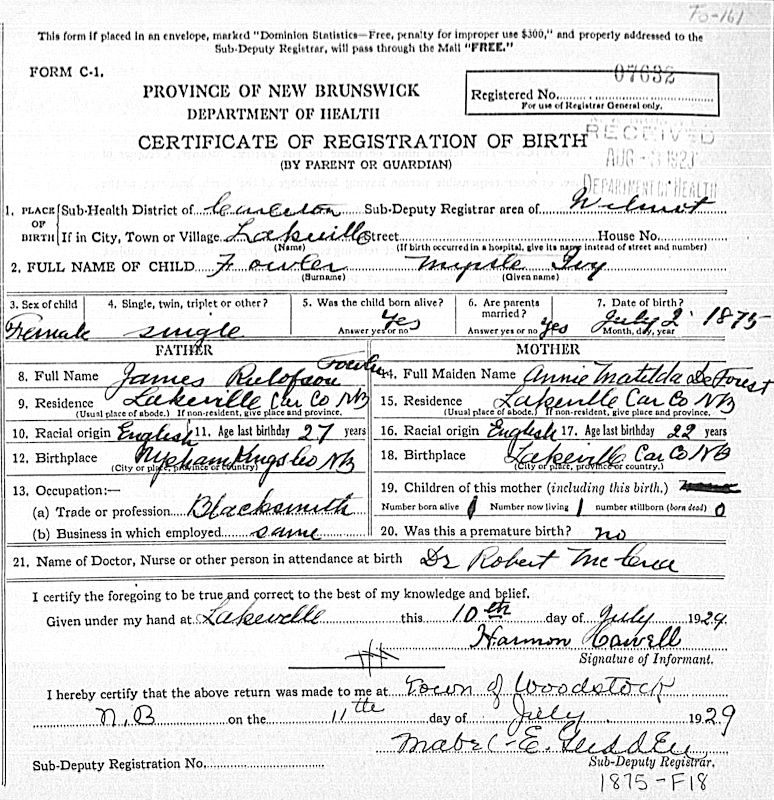 To-161
This form if placed in an envelope, marked "Dominion Statistics—Free, penalty for improper use $300," and properly addressed to the
Sub-Deputy Registrar, will pass through the Mail "FREE."
FORM C-1.
07632
PROVINCE OF NEW BRUNSWICK
Registered No.
DEPARTMENT OF HEALTH
For use of Registrar General only.
CERTIFICATE OF REGISTRATION OF BIRTH
RECEIVED
(BY PARENT OR GUARDIAN)
AUG
DEPARTMENT OF HEALTH
1. PLACE OF BIRTH
Sub-Health District of Carleton Sub-Deputy Registrar area of Wilmot
If in City, Town or Village Lakeville Street House No.
(Name) (If birth occurred in a hospital, give its name instead of street and number)
2. FULL NAME OF CHILD Fowler Myrtle Ivy
(Surname) (Given name)
3. Sex of child 4. Single, twin, triplet or other? 5. Was the child born alive? 6. Are parents married? 7. Date of birth?
Female single Answer yes or no yes Answer yes or no yes July 2 1875
Month, day, year
FATHER MOTHER
8. Full Name James Rulofson Fowler 14. Full Maiden Name Annie Matilda DeForest
9. Residence Lakeville Car Co NB 15. Residence Lakeville Car Co NB
(Usual place of abode.) If non-resident, give place and province. (Usual place of abode.) If non-resident, give place and province.
10. Racial origin English 11. Age last birthday 27 years 16. Racial origin English 17. Age last birthday 22 years
12. Birthplace Upham Kings Co NB 18. Birthplace Lakeville Car Co NB
(City or place, province or country) (City or place, province or country.)
13. Occupation:— 19. Children of this mother (including this birth.)
(a) Trade or profession Blacksmith Number born alive 1 Number now living 1 number stillborn (born dead) 0
(b) Business in which employed same 20. Was this a premature birth? no
21. Name of Doctor, Nurse or other person in attendance at birth Dr Robert
I certify the foregoing to be true and correct to the best of my knowledge and belief.
Given under my hand at Lakeville this 10th day of July 1929
Harmon
Signature of Informant.
I hereby certify that the above return was made to me at Town of Woodstock
N.B on the 11th day of July 1929
Mabel E.
Sub-Deputy Registration No. Sub-Deputy Registrar.
1875-F18